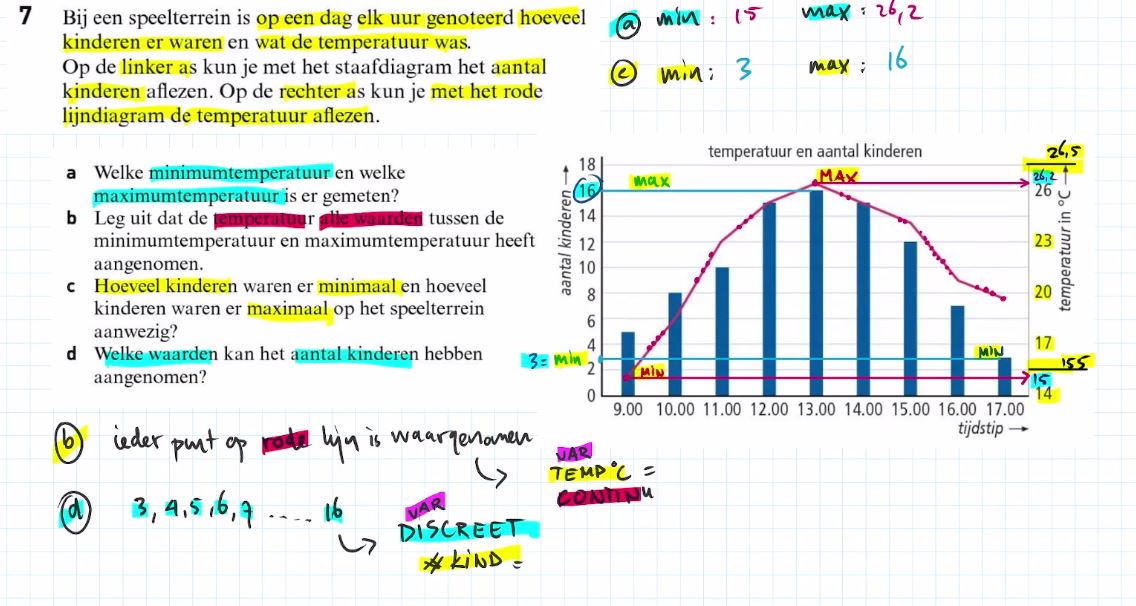 7 Bij een speelterrein is op een dag elk uur genoteerd hoeveel
kinderen er waren en wat de temperatuur was.
Op de linker as kun je met het staafdiagram het aantal
kinderen aflezen. Op de rechter as kun je met het rode
lijndiagram de temperatuur aflezen.
a min : 15 max : 26,2
c min : 3 max : 16
a Welke minimumtemperatuur en welke
maximumtemperatuur is er gemeten?
b Leg uit dat de temperatuur alle waarden tussen de
minimumtemperatuur en maximumtemperatuur heeft
aangenomen.
c Hoeveel kinderen waren er minimaal en hoeveel
kinderen waren er maximaal op het speelterrein
aanwezig?
d Welke waarden kan het aantal kinderen hebben
aangenomen?
temperatuur en aantal kinderen
aantal kinderen
18
16
14
12
10
8
6
4
2
0
max
MAX
3 = min
MIN
MIN
26,5
26,2
26
23
20
17
155
15
14
temperatuur in °C
9.00 10.00 11.00 12.00 13.00 14.00 15.00 16.00 17.00
tijdstip
b ieder punt op rode lijn is waargenomen
VAR
TEMP °C =
CONTINU
d 3, 4, 5, 6, 7 .... 16
VAR
DISCREET
# KIND =